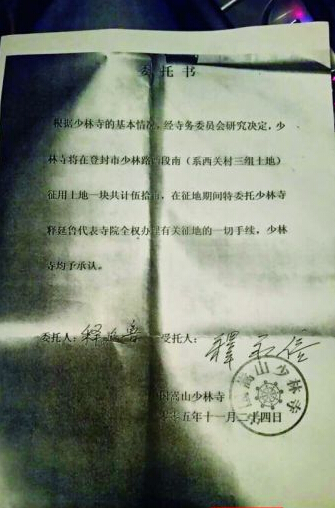 委托书
根据少林寺的基本情况,经寺务委员会研究决定,少
林寺将在登封市少林路西段南(系西关村三组土地)
征用土地一块共计伍拾亩,在征地期间特委托少林寺
释延鲁代表寺院全权办理有关征地的一切手续,少林
寺均予承认。
委托人:释延鲁 受托人:釋永信
国嵩山少林寺
五年十一月二十四日
嵩山少林寺